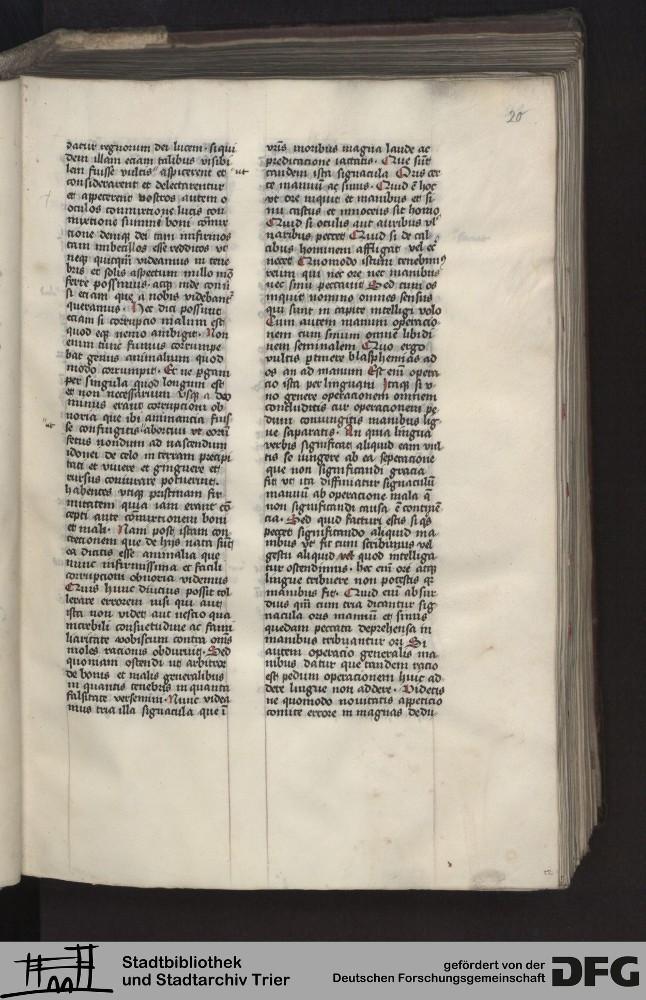 20
datur regnorum dei lucem · si qui
dem illam eciam talibus visibi
lem fuisse vultis ut aspicerent et
considerarent et delectarentur
et appeterent vostros autem o
oculos commixtione lucis con
tione denique dei tam infirmos
tam imbecillos esse redditos ut
neque quicquam videamus in tene
bris et solis aspectum nullo modo
ferre possimus · atque inde
si eciam que a nobis videbantur
queramus · Nec dici possunt
eciam si corrupcio malum est
quod eque nemo ambigit · Non
enim tunc fumus corrumpe
bat genus animalium quod
modo corrumpit · Et ne pergam
per singula quod longum est
et non necessarium usque a deo
minus erant corrupcioni ob
noxia que ibi animancia fuis
se confingitis ut abortivi ut eorum
fetus nondum ad nascendum
idonei de celo in terram precipi
tati et vivere et gingnere et
rursus coniurare potuerint ·
habentes utique pristinam fir
mitatem quia iam erant con
cepti ante commixtionem boni
et mali · Nam post istam con
ea dictis esse animalia que
nunc infirmissima et facili
corrupcioni obnoxia videmus
Quis hunc diucius possit tol
lerare errorem nisi qui aut
ista non videt aut nescio qua
incredibili consuetudine ac fami
liaritate vobiscum contra omnes
moles racionis obduruit · Sed
quoniam ostendi ut arbitror
de bonis et malis generalibus
in quantis tenebris in quanta
falsitate versemini · Nunc videa
mus tria illa signacula que in
vestris moribus magna laude ac
predicacione iactatis · Que sunt
tandem ista signacula Oris cer
te manuum ac sinus · Quid est hoc
ut ore inquit et manibus et si
nu castus et innocens sit homo
Quid si oculis aut auribus vel
naribus peccet Quid si de cal
cibus hominem affligat vel eciam
necet Quomodo istum tenebimus
reum qui nec ore nec manibus
nec sinu peccavit Sed cum os
inquit nomino omnes sensus
qui sunt in capite intelligi volo
Cum autem manum operacio
nem cum sinum omnem libidi
nem seminalem · Quo ergo
vultis pertinere blasphemias ad
os an ad manum Est enim opera
cio ista per linguam Itaque si u
no genere operacionem omnem
concluditis cur operacionem pe
dum coniungitis manibus lig
ne saparatis · An quia lingua
verbis significat aliquid eam vul
tis se iungere ab ea seperacione
que non significandi gracia
fit ut ita diffiniatur signaculum
manuum ab operacione mala que
non significandi causa est continen
cia · Sed quid facturi estis si quis
peccet significando aliquid ma
nibus ut fit cum scribimus vel
gestu aliquid vel quod intelliga
tur ostendimus · hec enim ore atque
lingue tribuere non potestis quia
manibus fit · Quid cui absur
dius quam cum tria dicantur sig
nacula oris manuum et sinus
quedam peccata deprehensa in
manibus tribuantur ori Si
autem operacio generalis ma
nibus datur que tandem racio
est pedum operacionem huic ad
dere lingue non addere · Videtis
ne quomodo novitatis appeticio
comite errore in magnas dedu
Stadtbibliothek
und Stadtarchiv Trier
gefördert von der
Deutschen Forschungsgemeinschaft
DFG